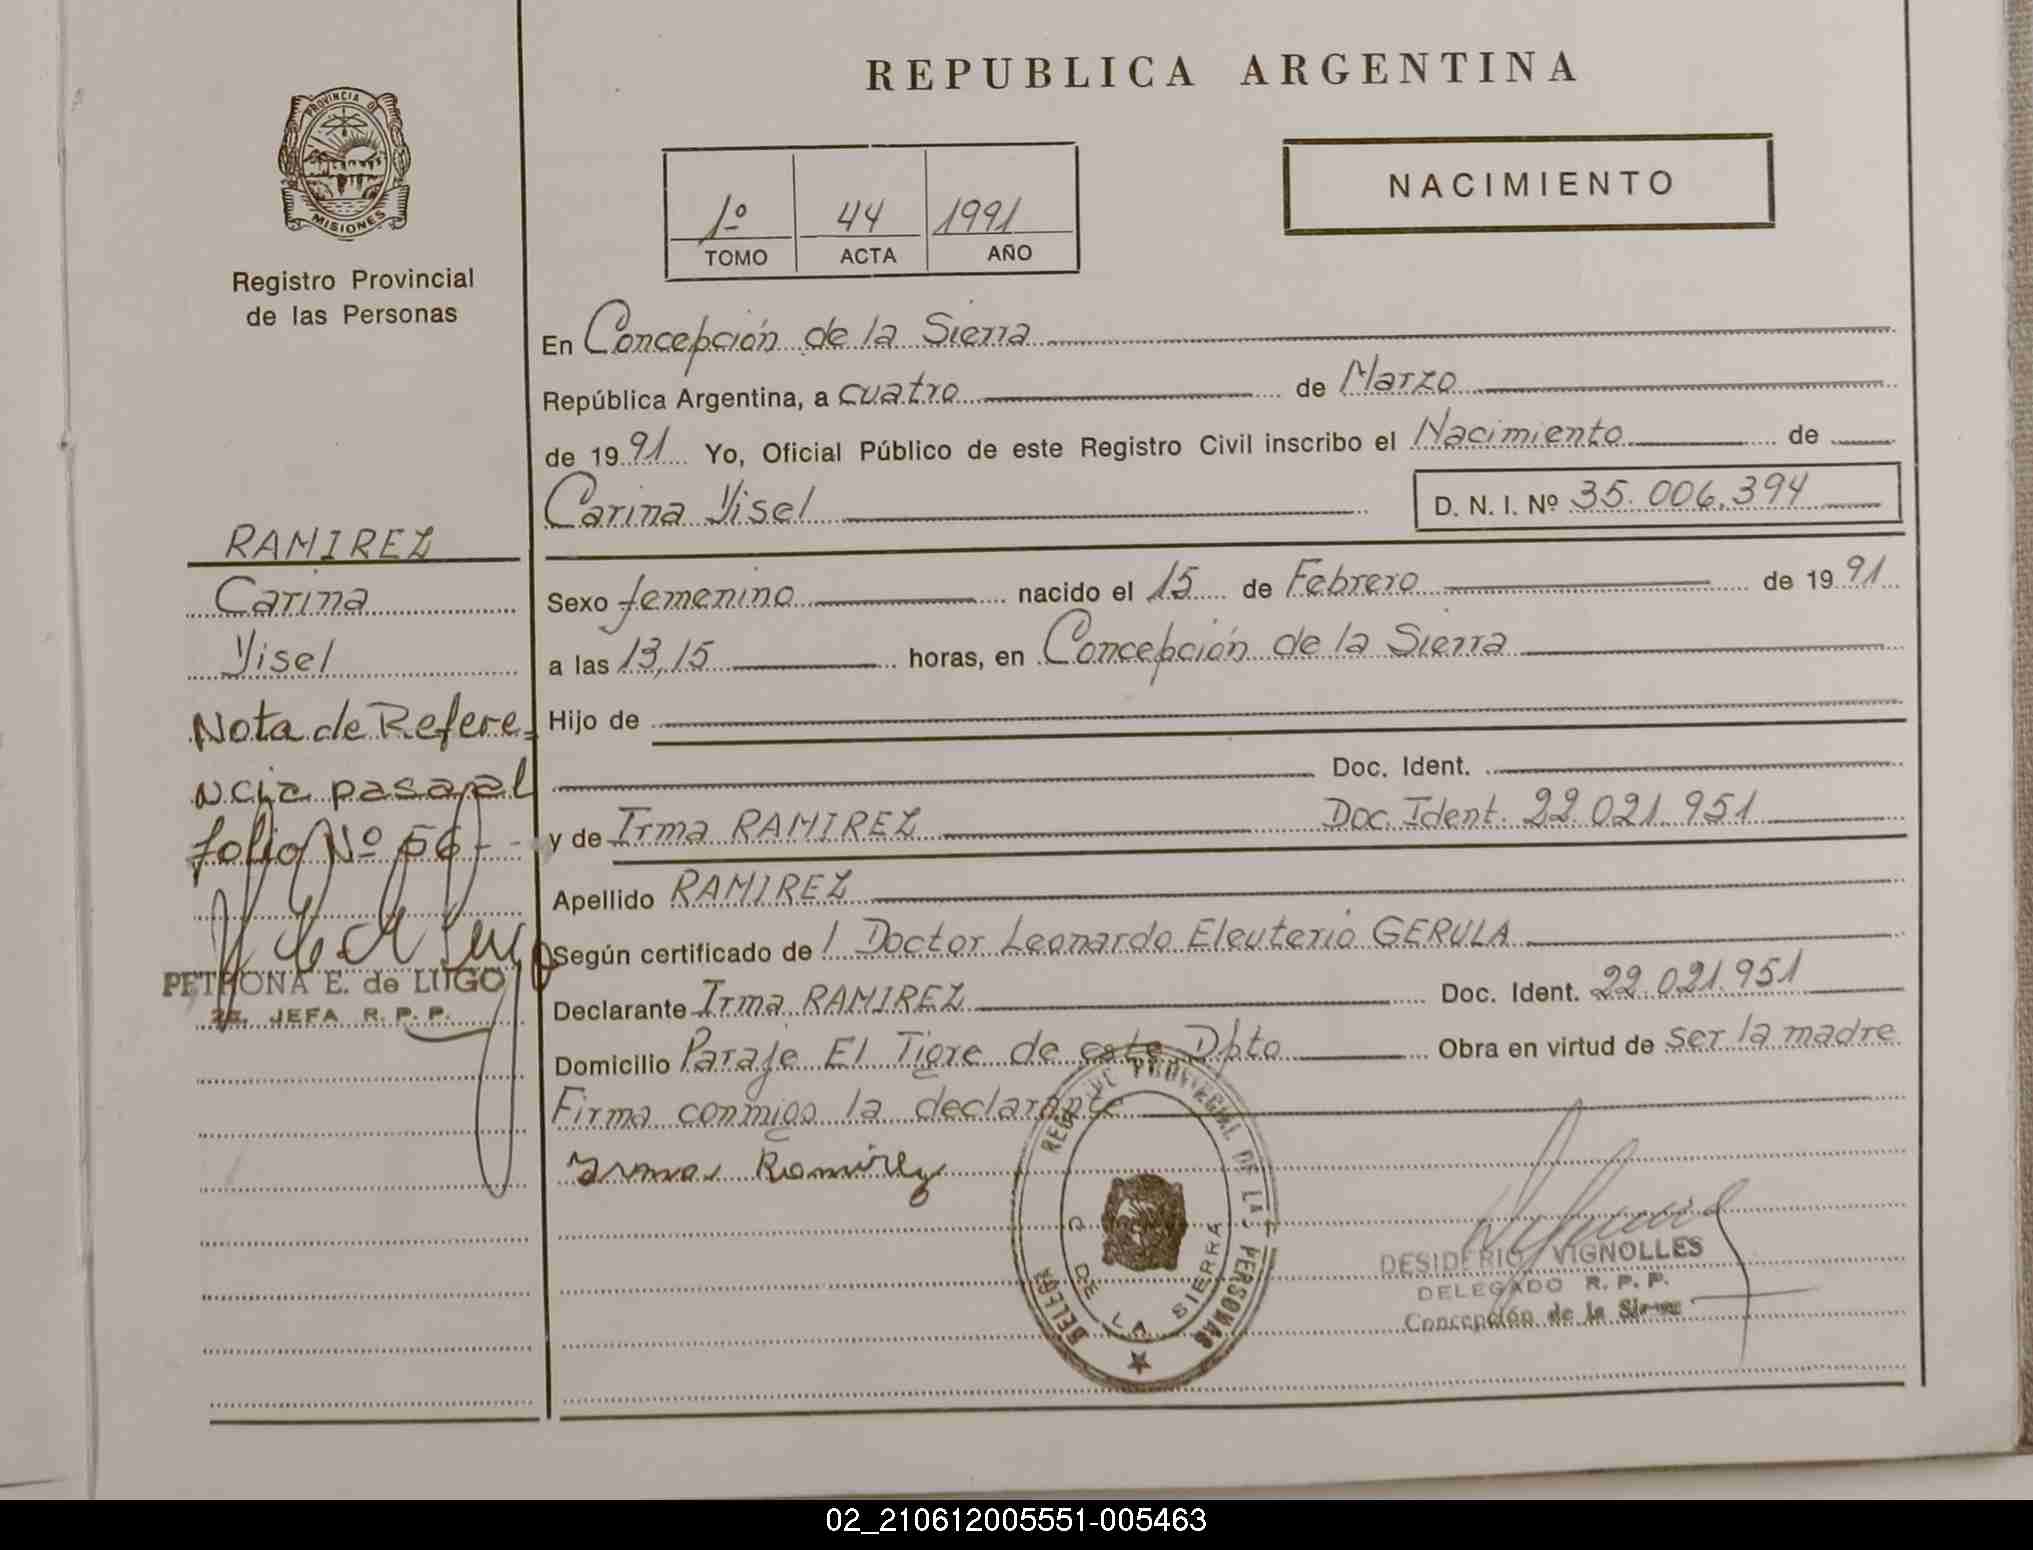 REPUBLICA ARGENTINA
PROVINCIA DE
MISIONES
Registro Provincial
de las Personas
1º 44 1991
TOMO ACTA AÑO
NACIMIENTO
En Concepción de la Sierra
República Argentina, a cuatro de Marzo
de 1991 Yo, Oficial Público de este Registro Civil inscribo el Nacimiento de
Carina Yisel D. N. I. Nº 35.006.394
Sexo femenino nacido el 15 de Febrero de 1991
a las 13,15 horas, en Concepción de la Sierra
Hijo de
Doc. Ident.
y de Irma RAMIREZ Doc. Ident. 22.021.951
Apellido RAMIREZ
Según certificado de l Doctor Leonardo Eleuterio GERULA
Declarante Irma RAMIREZ Doc. Ident. 22.021.951
Domicilio Paraje El Tigre de este Dpto Obra en virtud de ser la madre
Firma conmigo la declarante
Irma Ramirez
RAMIREZ
Carina
Yisel
Nota de Refere_
ncia pasa al
folio Nº 56 - -
PETRONA E. de LUGO
JEFA R. P. P.
PROVINCIAL DE LAS PERSONAS
DE LA SIERRA
DESIDERIO VIGNOLLES
DELEGADO R. P. P.
Concepción de la Sierra
02_210612005551-005463